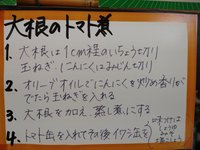 大根のトマト煮
1. 大根は1cm程のいちょう切り
玉ねぎ、にんにくはみじん切り
2. オリーブオイルでにんにくを炒め香りが
でたら玉ねぎを入れる
3. 大根を加え蒸し煮にする
4. トマト缶を入れてその後イワシ缶を
味つけは
しょうゆ